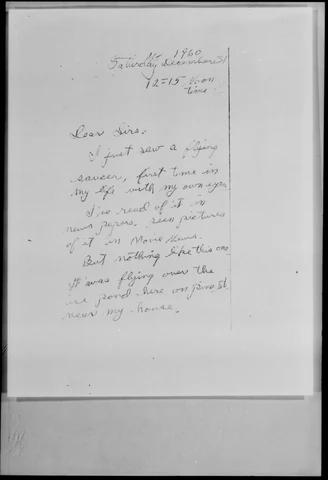 1960
Saturday December 31
12=15 Noon
time
Dear Sirs:
I just saw a flying
saucer, first time in
my life with my own eyes.
I've read of it in
news papers, seen pictures
of it in Movie News.
But nothing like this one
It was flying over the
ice pond here on pine St
near my house.